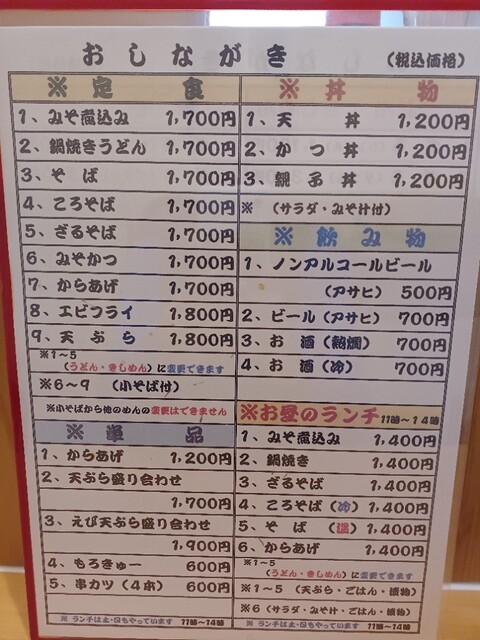 おしながき (税込価格)
※ 定 食
1、みそ煮込み 1,700円
2、鍋焼きうどん 1,700円
3、そ ば 1,700円
4、ころそば 1,700円
5、ざるそば 1,700円
6、みそかつ 1,700円
7、からあげ 1,700円
8、エビフライ 1,800円
9、天 ぷ ら 1,800円
※1～5
(うどん・きしめん)に変更できます
※6～9 (小そば付)
※小そばから他のめんの変更はできません
※ 単 品
1、からあげ 1,200円
2、天ぷら盛り合わせ
1,700円
3、えび天ぷら盛り合わせ
1,900円
4、もろきゅー 600円
5、串カツ(4本) 600円
※ ランチは土・日もやっています 11時～14時
※ 丼 物
1、天 丼 1,200円
2、かつ丼 1,200円
3、親子丼 1,200円
※ (サラダ・みそ汁付)
※ 飲 み 物
1、ノンアルコールビール
(アサヒ) 500円
2、ビール(アサヒ) 700円
3、お 酒(熱燗) 700円
4、お 酒(冷) 700円
※お昼のランチ 11時～14時
1、みそ煮込み 1,400円
2、鍋焼き 1,400円
3、ざるそば 1,400円
4、ころそば(冷) 1,400円
5、そ ば(温) 1,400円
6、からあげ 1,400円
※1～5
(うどん・きしめん)に変更できます
※1～5 (天ぷら・ごはん・漬物)
※6 (サラダ・みそ汁・ごはん・漬物)
※ ランチは土・日もやっています 11時～14時